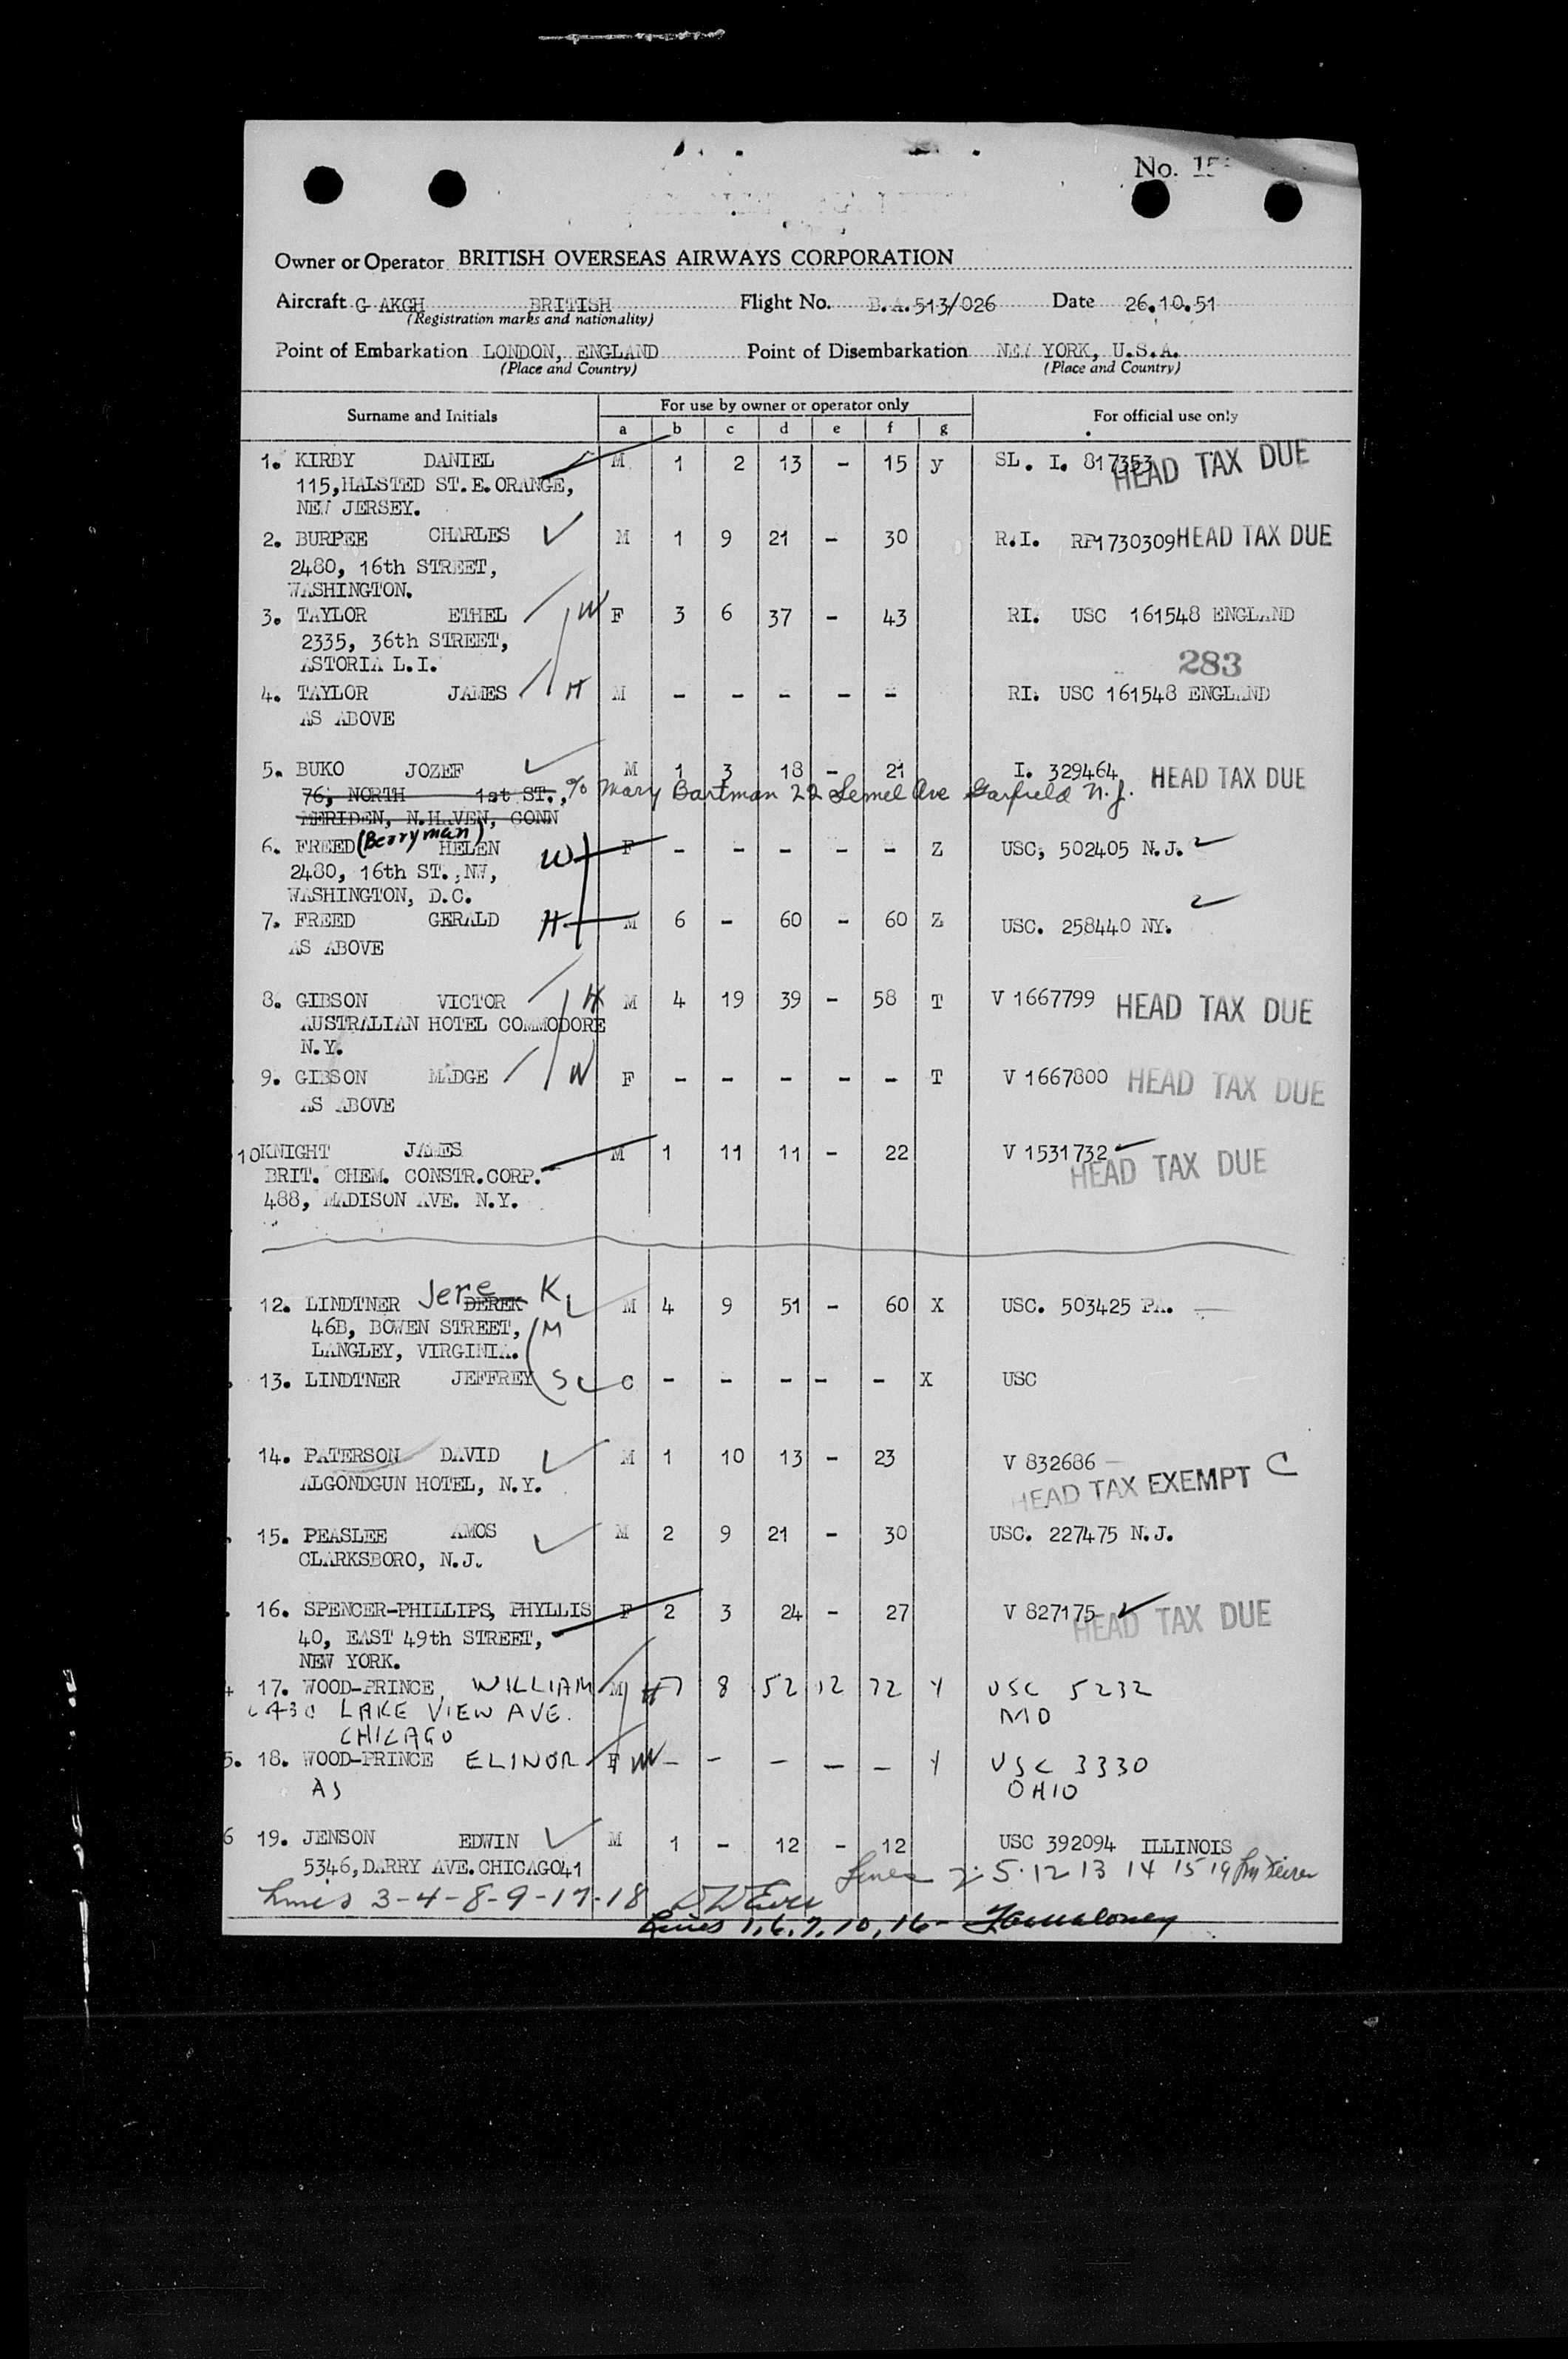 No. 15
Owner or Operator BRITISH OVERSEAS AIRWAYS CORPORATION
Aircraft G AKGH BRITISH Flight No. B.A.513/026 Date 26.10.51
(Registration marks and nationality)
Point of Embarkation LONDON, ENGLAND Point of Disembarkation NEW YORK, U.S.A.
(Place and Country) (Place and Country)
Surname and Initials For use by owner or operator only For official use only
a b c d e f g
1. KIRBY DANIEL M 1 2 13 - 15 y SL. I. 817353 HEAD TAX DUE
115,HALSTED ST.E.ORANGE,
NEW JERSEY.
2. BURPEE CHARLES M 1 9 21 - 30 R.I. RP1730309 HEAD TAX DUE
2480, 16th STREET,
WASHINGTON.
3. TAYLOR ETHEL W F 3 6 37 - 43 RI. USC 161548 ENGLAND
2335, 36th STREET,
ASTORIA L.I. 283
4. TAYLOR JAMES H M - - - - - RI. USC 161548 ENGLAND
AS ABOVE
5. BUKO JOZEF M 1 3 18 - 21 I. 329464 HEAD TAX DUE
76, NORTH 1st ST., c/o Mary Bartman 22 Semel Ave Garfield N.J.
MERIDEN, N.HAVEN, CONN
6. FREED (Berryman) HELEN W F - - - - - Z USC, 502405 N.J.
2480, 16th ST., NW,
WASHINGTON, D.C.
7. FREED GERALD H M 6 - 60 - 60 Z USC. 258440 NY.
AS ABOVE
8. GIBSON VICTOR H M 4 19 39 - 58 T V 1667799 HEAD TAX DUE
AUSTRALIAN HOTEL COMMODORE
N.Y.
9. GIBSON MADGE W F - - - - - T V 1667800 HEAD TAX DUE
AS ABOVE
10 KNIGHT JAMES M 1 11 11 - 22 V 1531732 HEAD TAX DUE
BRIT. CHEM. CONSTR.CORP.
488, MADISON AVE. N.Y.
12. LINDTNER Jere DEREK K M 4 9 51 - 60 X USC. 503425 PA.
46B, BOWEN STREET, M
LANGLEY, VIRGINIA.
13. LINDTNER JEFFREY S C - - - - - X USC
14. PATERSON DAVID M 1 10 13 - 23 V 832686
ALGONDGUN HOTEL, N.Y. HEAD TAX EXEMPT C
15. PEASLEE AMOS M 2 9 21 - 30 USC. 227475 N.J.
CLARKSBORO, N.J.
16. SPENCER-PHILLIPS, PHYLLIS F 2 3 24 - 27 V 827175 HEAD TAX DUE
40, EAST 49th STREET,
NEW YORK.
17. WOOD-PRINCE WILLIAM M H 7 8 52 12 72 Y USC 5232
LAKE VIEW AVE. MO
CHICAGO
5. 18. WOOD-PRINCE ELINOR F W - - - - - Y USC 3330
AS OHIO
6 19. JENSON EDWIN M 1 - 12 - 12 USC 392094 ILLINOIS
5346,DARRY AVE.CHICAGO41
Lines 2. 5. 12 13 14 15 19
Lines 3-4-8-9-17-18
Lines 1, 6, 7, 10, 16-